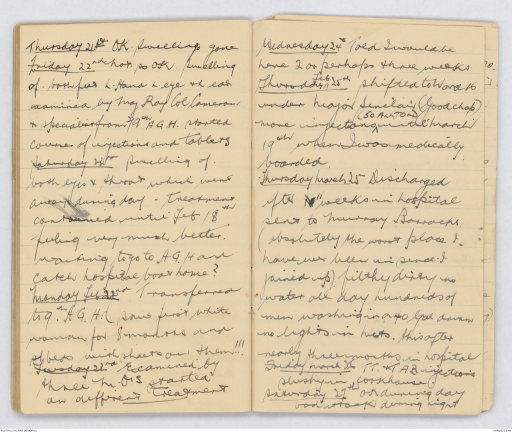 Thursday 21st OK. Swelling gone
Friday 22nd not so OK. Swelling
of both feet L. Hand L eye & L ear
examined by Maj Ray Col Cameron
& Specialist from 9th A.G.H. started
course of injections and tablets
Saturday Swelling of
both eyes & throat which went
away during day. Treatment
continued until Feb 18th
feeling very much better.
waiting to go to A.G.H and
catch hospital boat home?
Monday Feb 22nd Transferred
to 9th A.G.H. (saw first white
woman for 8 months and
beds with sheets on them!!!
Tuesday 23rd Examined by
three M.O's started
on different treatment
Wednesday 24th Told I would be
here 2 or perhaps three weeks
Thursday Feb 25th shifted to Ward 10
under Major Sinclair (Good chap)
more injections until March
19th when I was medically
boarded.
Thursday March 25 Discharged
after weeks in hospital
sent to Murray Barracks
(absolutely the worst place I
have ever been in since I
joined up) filthy dirty no
water all day hundreds of
men washing in a 40 gal drum
no lights in huts. this after
nearly three months in hospital
Friday March 26 T.T. & T.A.B injections
slushy in cookhouse
Saturday 27th OK during day
bad attack during night